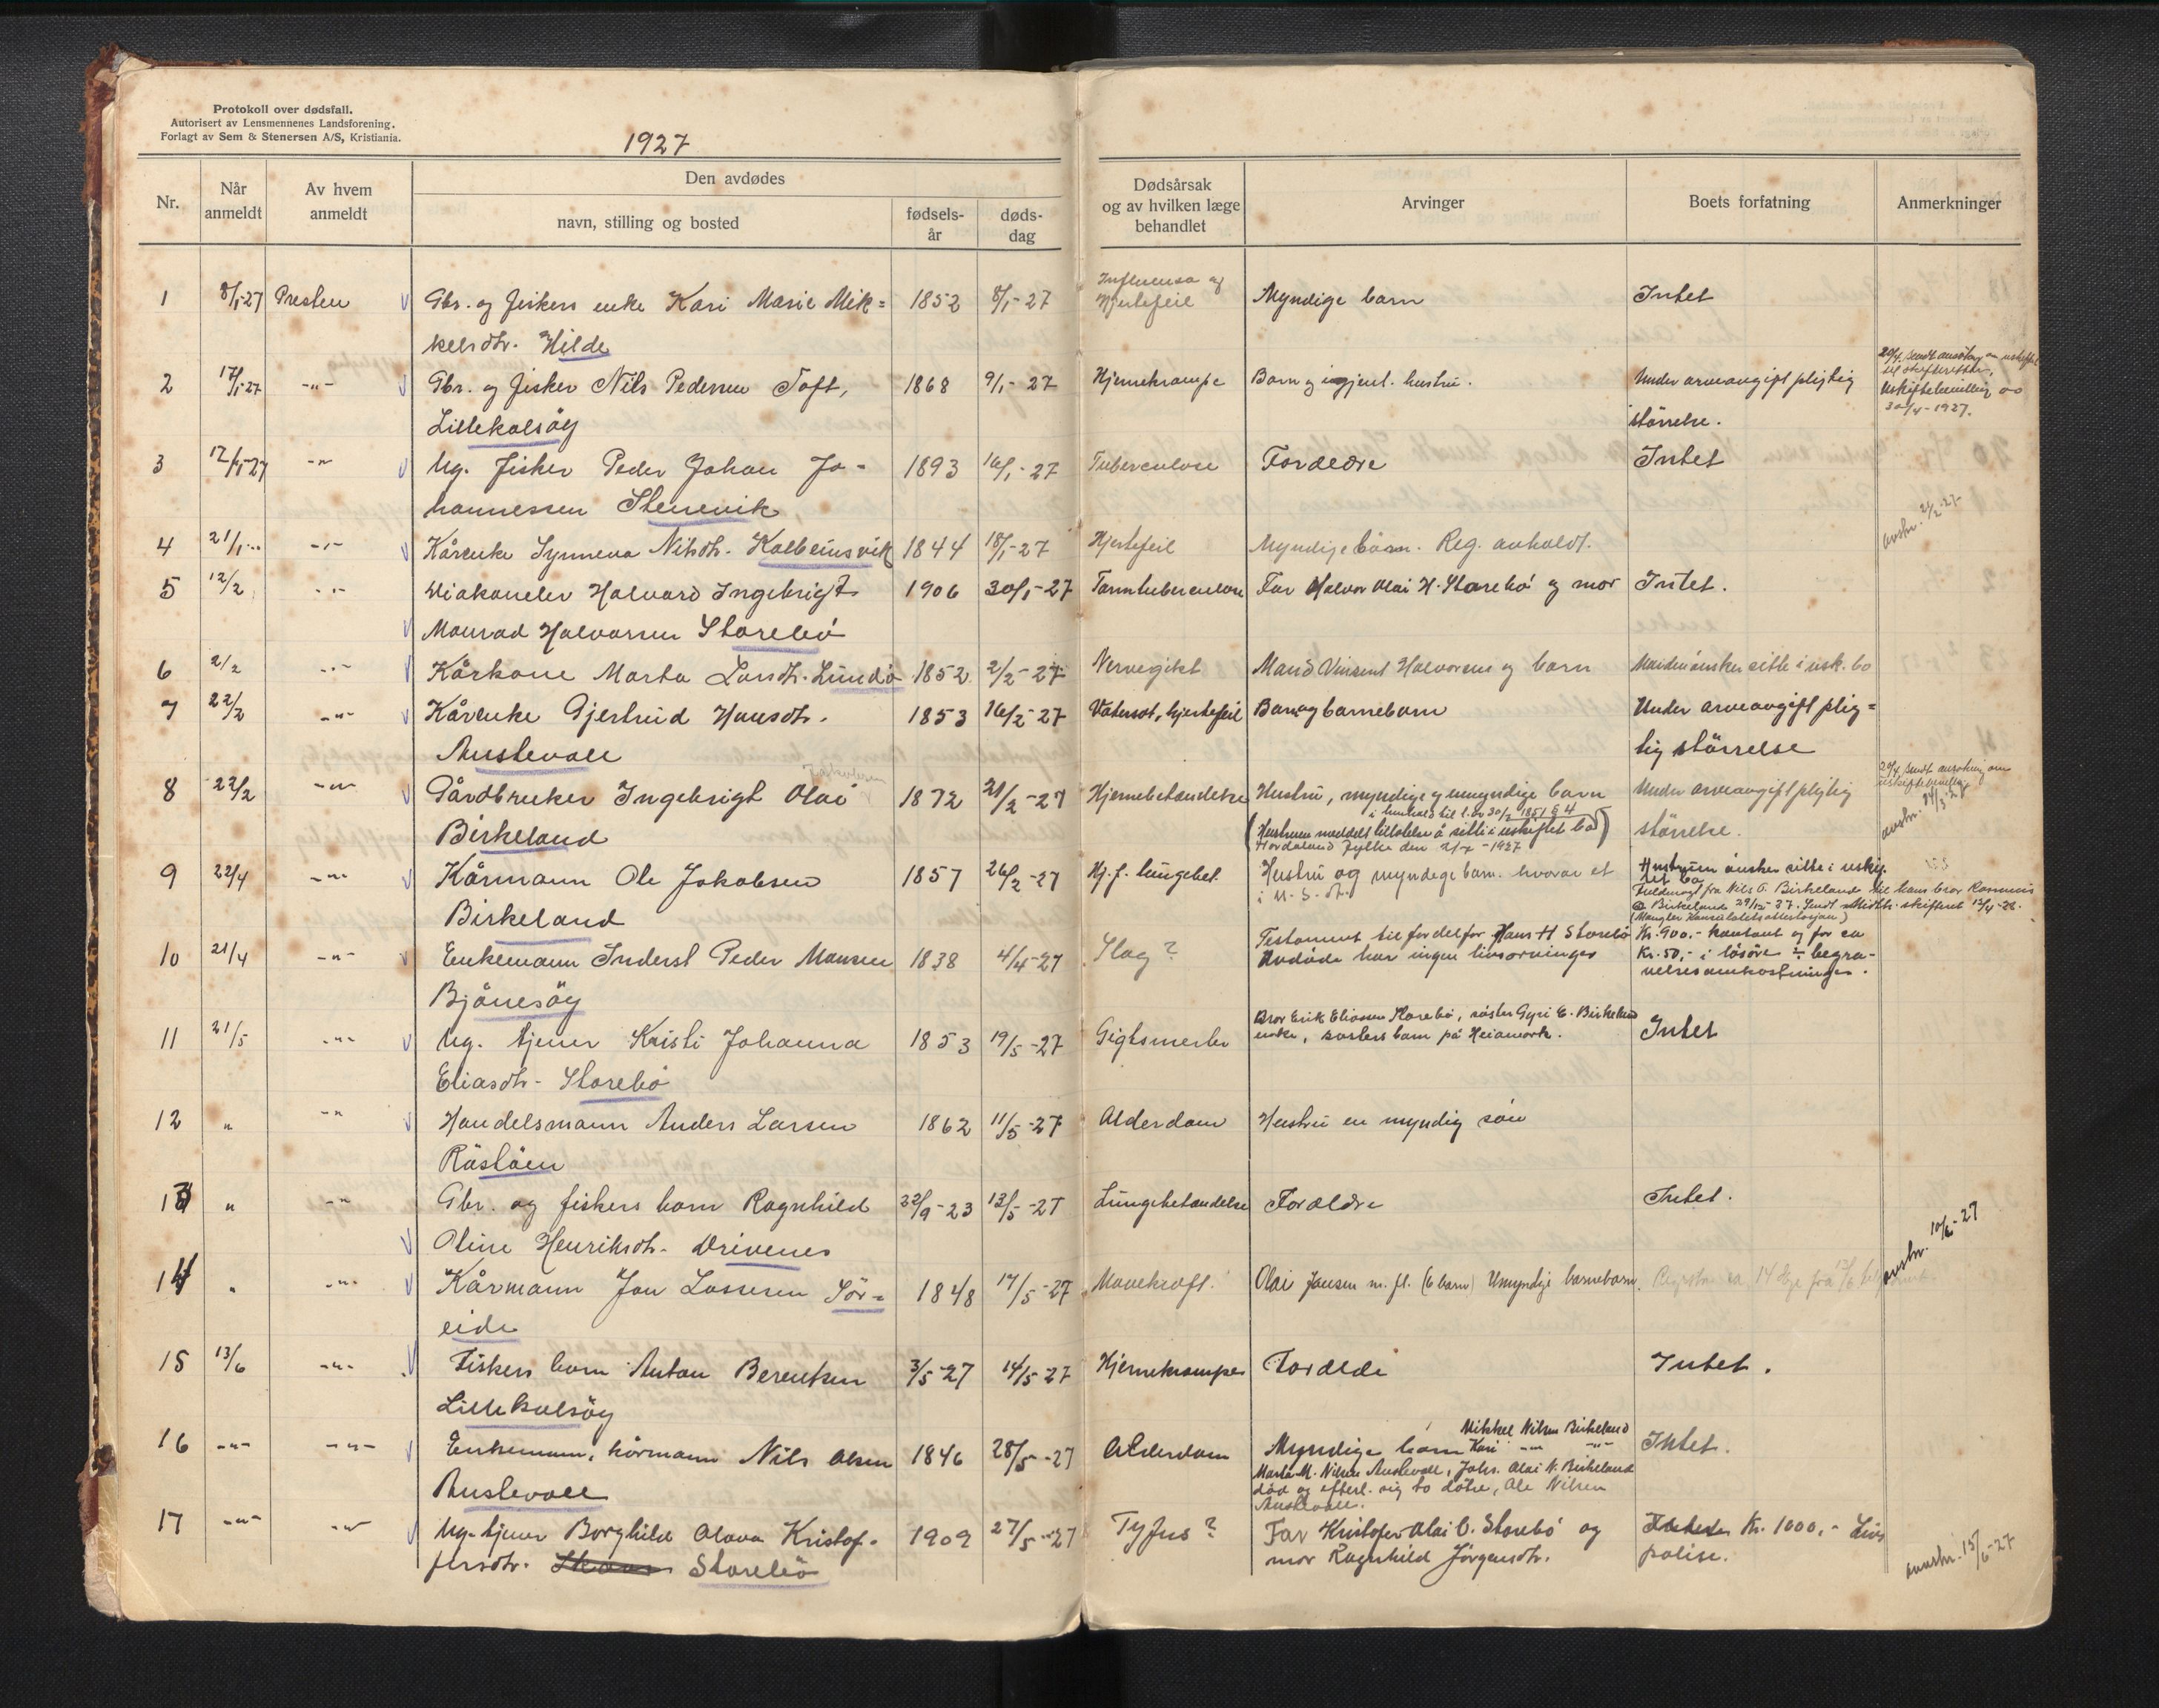 Protokoll over dødsfall.
Autorisert av Lensmennenes Landsforening.
Forlagt av Sem & Stenersen A/S, Kristiania.
1927
Nr.
Når anmeldt
Av hvem anmeldt
Den avdødes
navn, stilling og bosted
fødsels-år
døds-dag
Dødsårsak og av hvilken læge behandlet
Arvinger
Boets forfatning
Anmerkninger
1 8/1-27 Presten Gbr. og fiskers enke Kari Marie Mik= 1852 8/1-27 Influensa og Hjertefeil Myndige barn Intet
kelsdtr. Hilde
2 17/1-27 -"- Gbr. og fisker Nils Pedersen Toft, 1868 9/1-27 Hjernekrampe Barn og igjenl. hustru. Under arveavgift pligtig
Lillekalsöy størrelse.
30/4-1927.
3 17/1-27 -"- Ug. fisker Peder Johan Jo- 1893 16/1-27 Tuberculose Foreldre Intet
hannessen Stenevik
4 21/1 -"- Kårenke Synneva Nilsdtr. Kolbeinsvik 1844 18/1-27 Hjertefeil Myndige barn. Reg. avholdt. avskr. 21/2-27
5 12/2 -"- Halvard Ingebrigt 1906 30/1-27 Tarmtuberculose Far Halvor Olai H. Storebö og mor Intet.
Monrad Halvorsen Storebö
6 2/2 -"- Kårkone Marta Larsdtr. Lundö 1852 2/2-27 Nervegikt Mand Vinsent Halvorsens og barn Manden ønsker sitte i usk. bo
7 22/2 -"- Kårenke Gjertrud Hansdtr. 1853 16/2-27 Vatersot, hjertefeil Barn og barnebarn Under arveavgift plig=
Austevoll tig størrelse
8 22/2 -"- Gårdbruker Ingebrigt Olai 1872 21/2-27 Hjernebetændelse Hustru, myndige og umyndige barn Under arveavgiftpligtig
Birkeland størrelse.
i henhold til l. av 30/7 1851 § 4
(Hustruen meddelt tillatelse å sitte i uskiftet bo)
Hordaland fylke den 21-1927
avskr. 14/3-27
9 22/4 -"- Kårmann Ole Jakobsen 1857 26/2-27 Hj. f. lungebet. Hustru og myndige barn. hvorav et Hustruen ønsker sitte i uskif-
Birkeland i U. S. A. tet bo
Fuldmagt fra Nils O. Birkeland til hans bror Rasmus
O. Birkeland 29/12-27. Sendt skifteret 12/4-28.
10 21/4 -"- Enkemann Inderst Peder Monsen 1838 4/4-27 Slag? Testament til fordel for Hans H Storebö Kr. 900.- kontant og for ca
Avdöde har ingen livsarvinger Kr. 50,- i lösöre ÷ begra-
Bjånesöy velsesomkostninger.
11 21/5 -"- Ug. tjener Kristi Johanna 1853 19/5-27 Gigtsmerter Bror Erik Eliassen Storebö, söster Gyri E. Birkeland Intet
enke, sösters barn på Heiamork.
Eliasdtr. Storebö
12 " -"- Handelsmann Anders Larsen 1862 11/5-27 Alderdom Hustru en myndig sön
Röstöen
13 " -"- Gbr. og fiskers barn Ragnhild 22/9-23 13/5-27 Lungebetændelse Foreldre Intet.
Oline Henriksdtr. Drivenes
14 " -"- Kårmann Jon Lassesen Sör= 1848 17/5-27 Mavekræft. Olai Jansen m. fl. (6 barn) Umyndige barnebarn. avskr. 10/6-27
eide
15 13/6 -"- Fiskers barn Anton Berentsen 3/5-27 14/5-27 Hjernekrampe Foreldre Intet.
Lillekalsöy
16 -"- -"- Enkemann, kårmann Nils Olsen 1846 28/5-27 Alderdom Myndige barn Mikkel Nilsen Birkeland Intet.
Kari -"- -"-
Marta M. Nilsen Austevoll, Johs. Olai N. Birkeland
död og efterl. sig to dötre, Ole Nilsen
Austevoll.
Austevoll
17 -"- -"- Ug. tjener Borghild Olava Kristof- 1909 27/5-27 Tyfus? Far Kristofer Olai O. Storebö og Kr. 1000,- Livs
fersdtr. Storebö mor Ragnhild Jörgensdtr. polise. avskr. 15/6-27